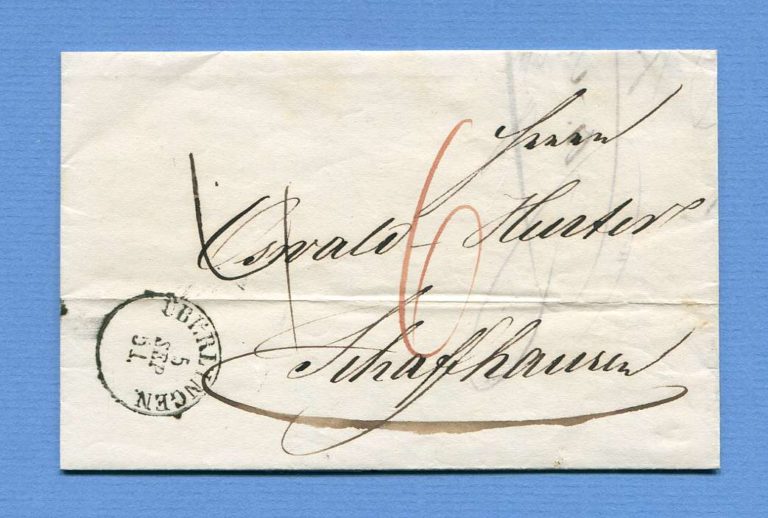 Herrn
Oswald Hurter
6
Schaffhausen
ÜBERLINGEN
5
SEP
51